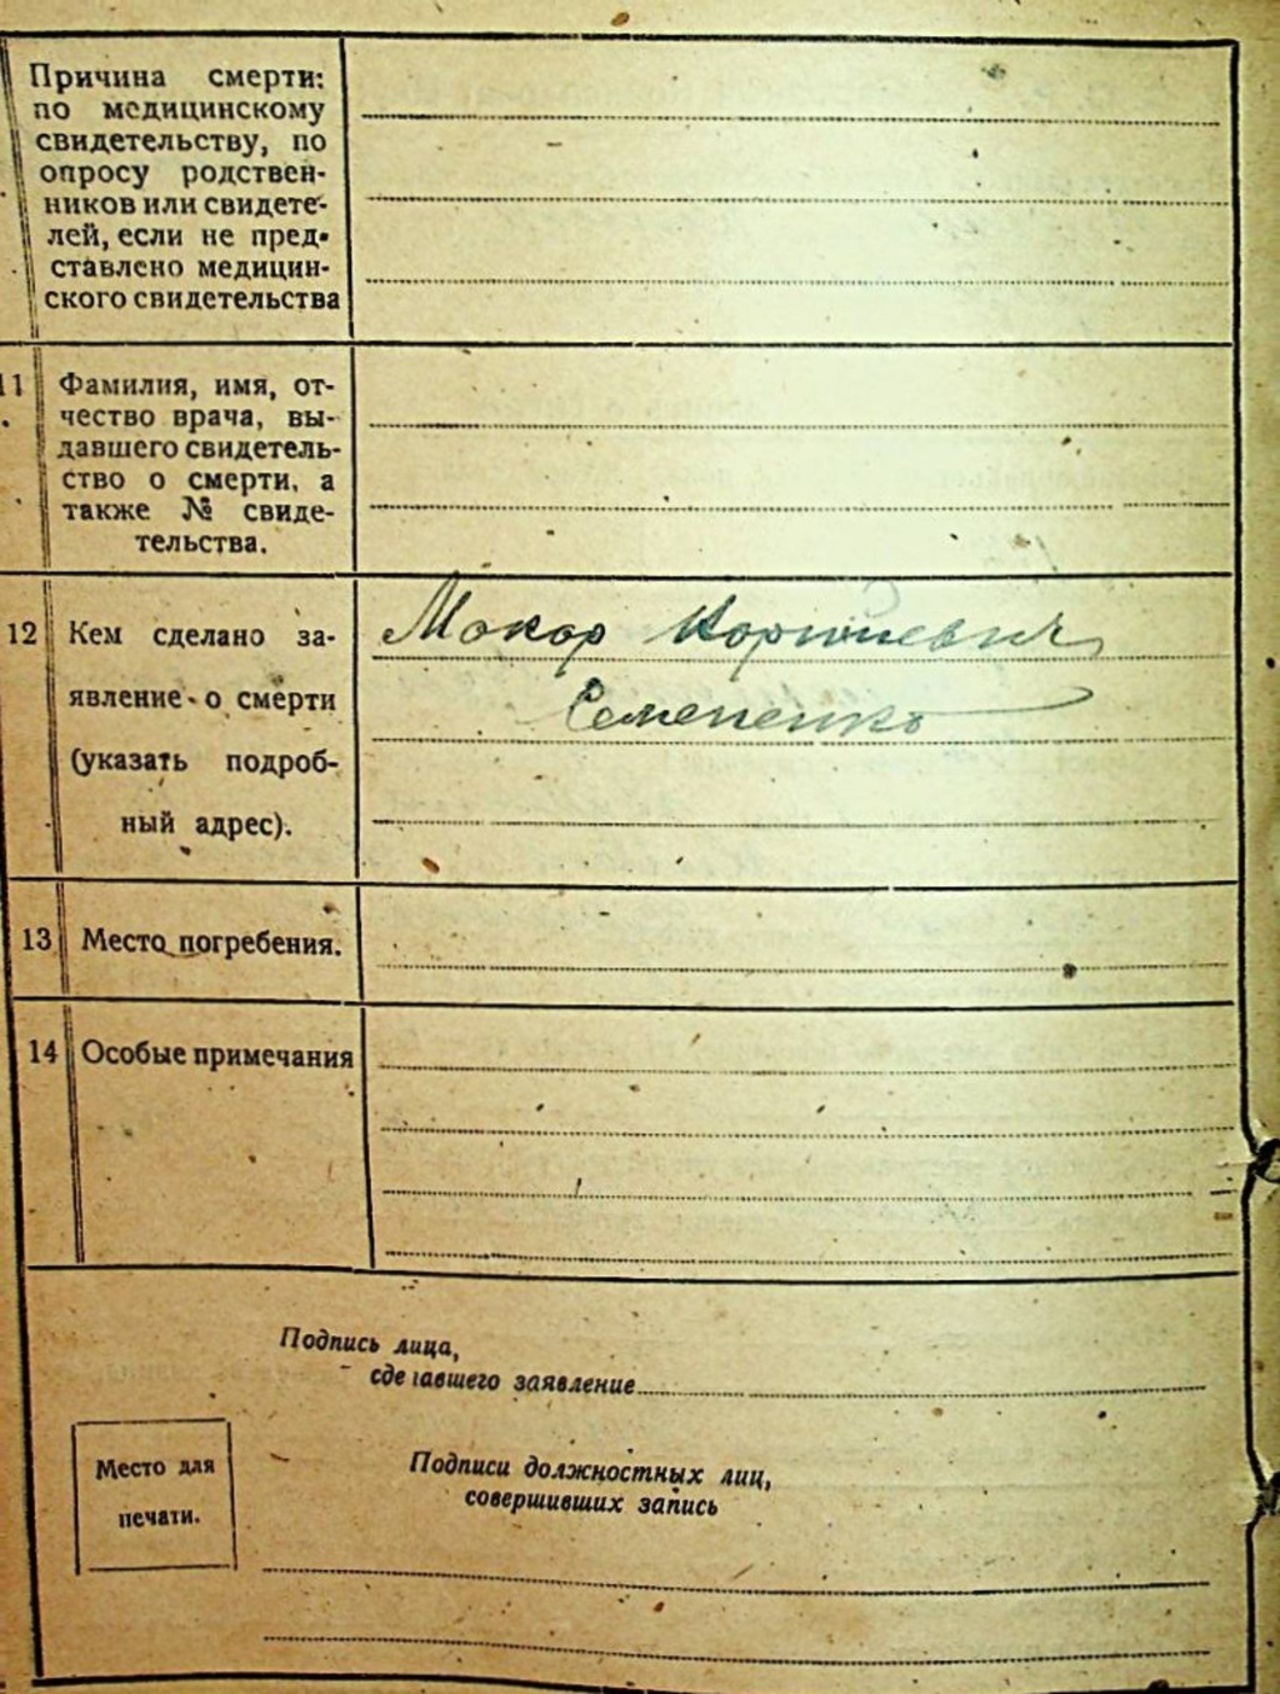 Причина смерти:
по медицинскому
свидетельству, по
опросу родствен-
ников или свидете-
лей, если не пред-
ставлено медицин-
ского свидетельства
11
Фамилия, имя, от-
чество врача, вы-
давшего свидетель-
ство о смерти, а
также № свиде-
тельства.
Макар
12 Кем сделано за-
Семененко
явление о смерти
(указать подроб-
ный адрес).
13 Место погребения.
14 Особые примечания
Подпись лица,
сделавшего заявление
Место для
печати.
Подписи должностных лиц,
совершивших запись